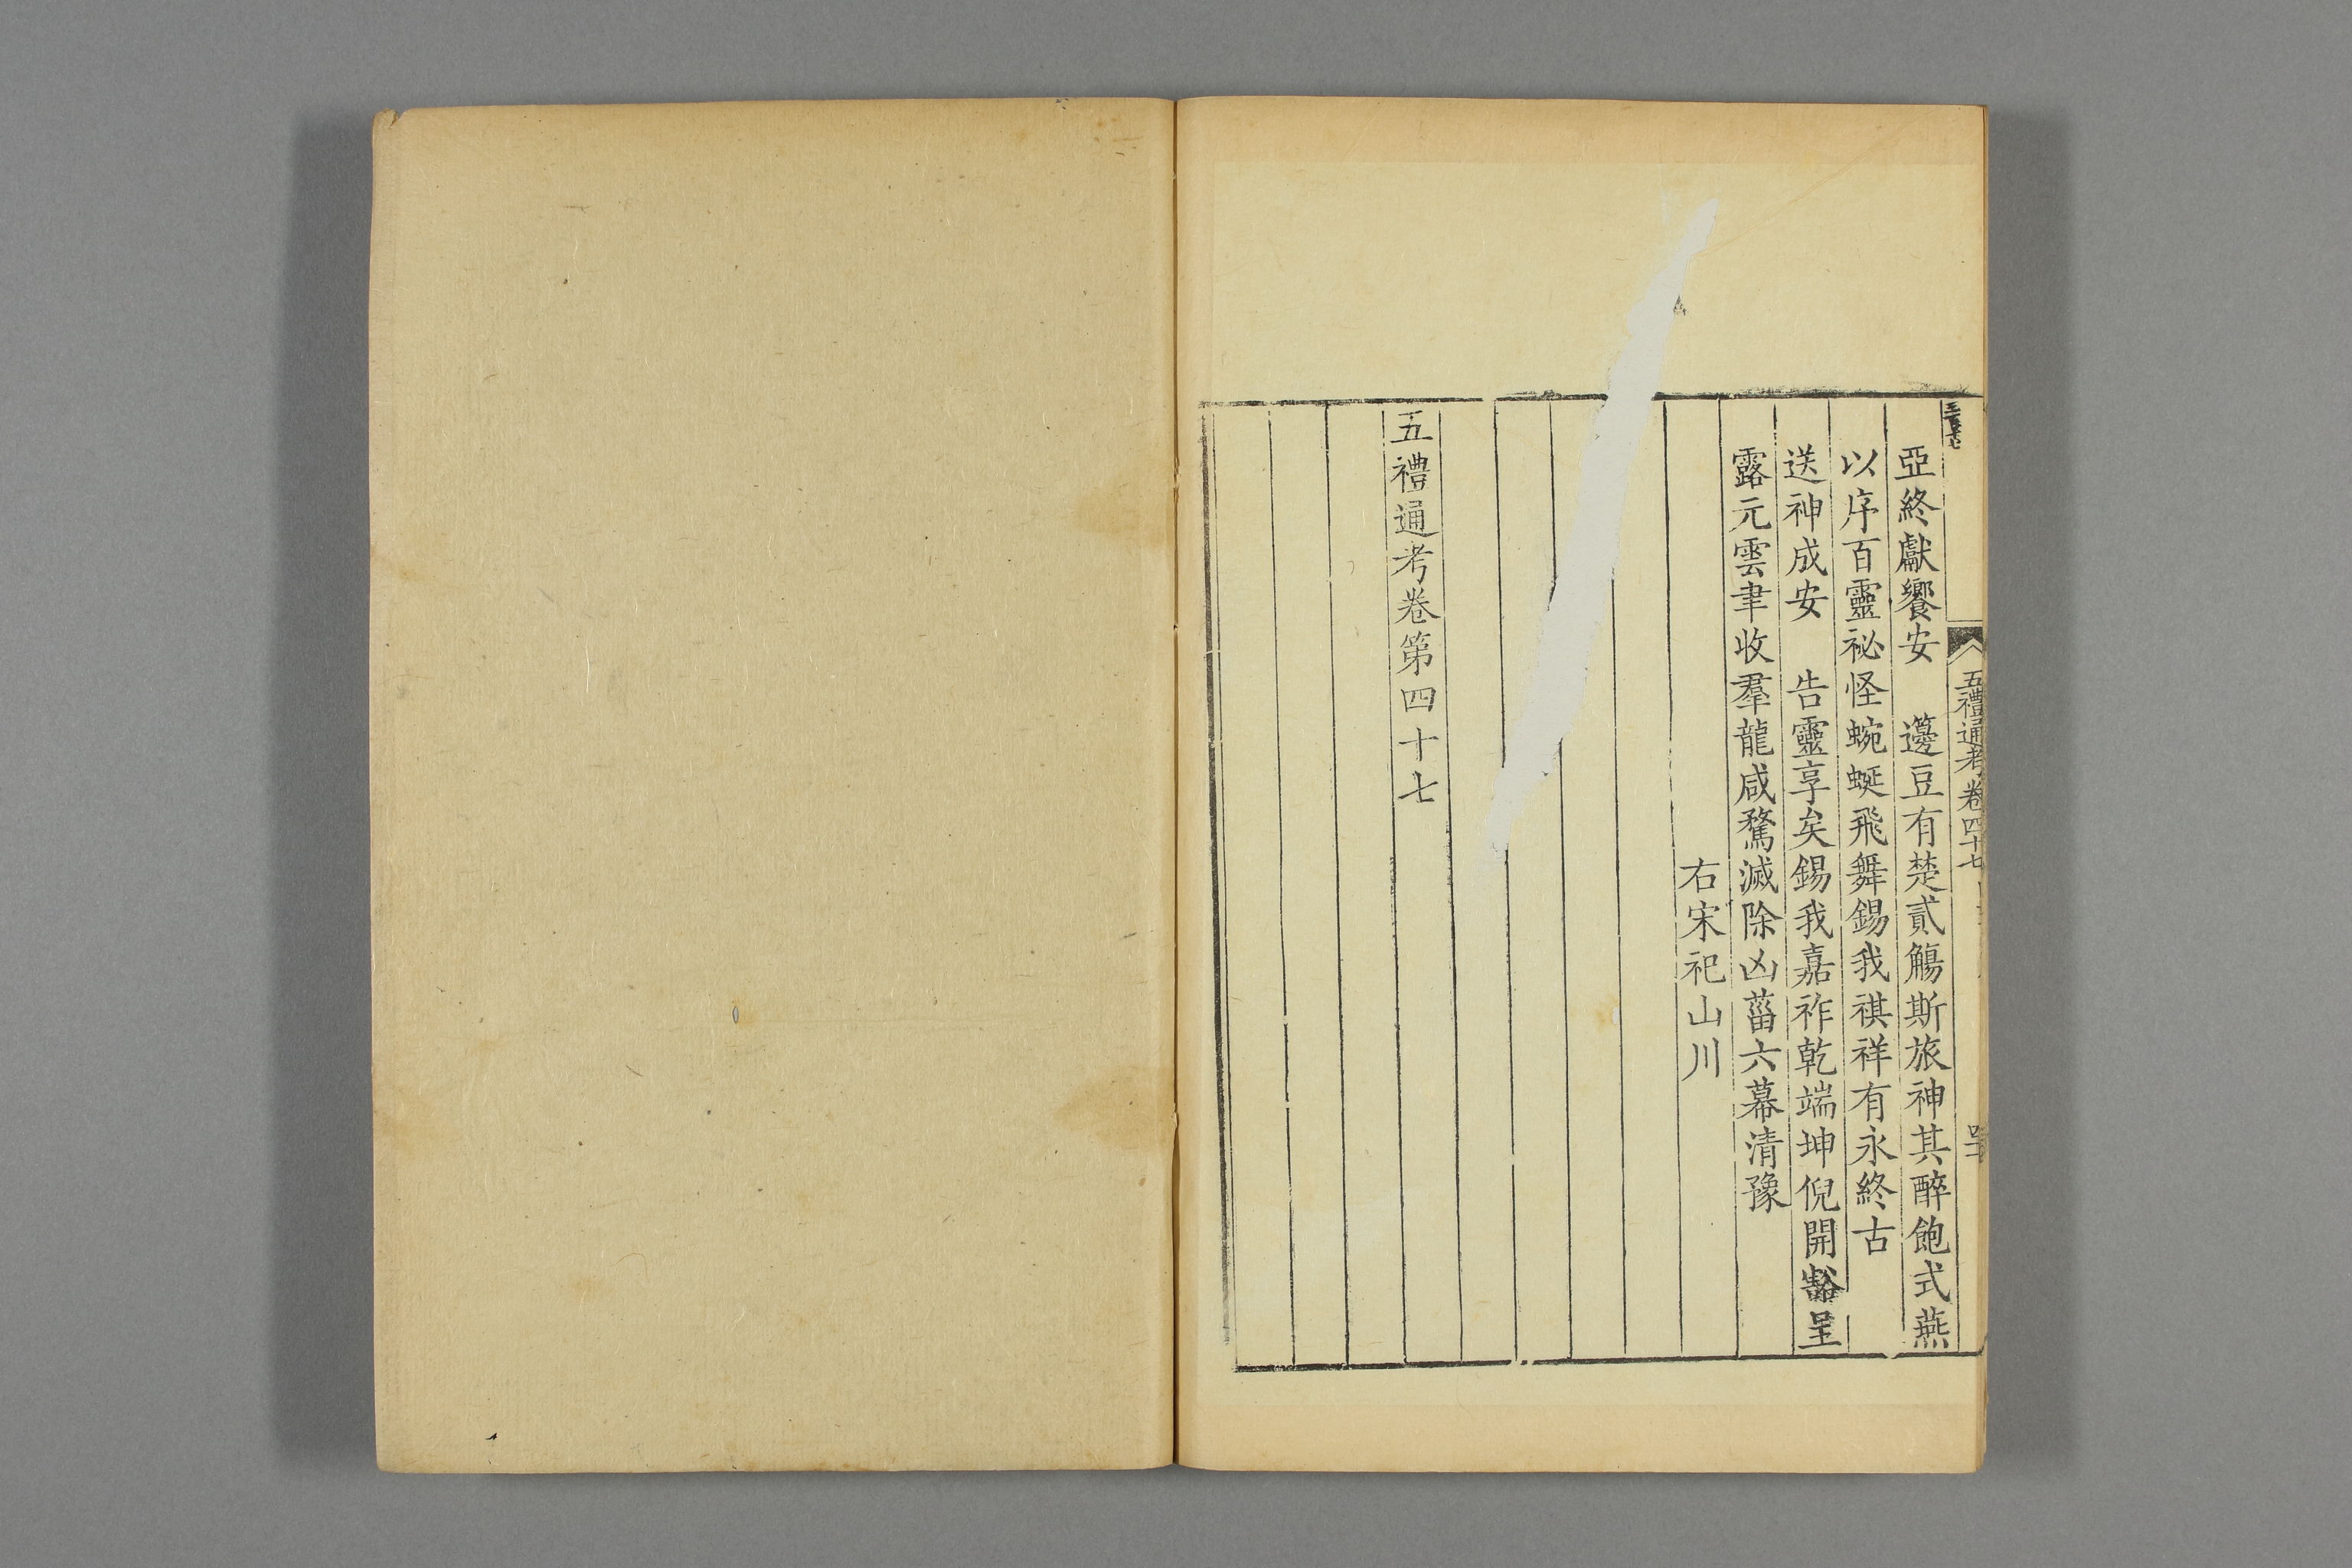 五禮通考卷四十七
亞終獻饗安　籩豆有楚貳觴斯旅神其醉飽式燕
以序百靈祕怪蜿蜒飛舞錫我祺祥有永終古
送神成安　告靈享矣錫我嘉祚乾端坤倪開豁呈
露元雲聿收羣龍咸騖滅除凶菑六幕清豫
右宋祀山川
五禮通考卷第四十七